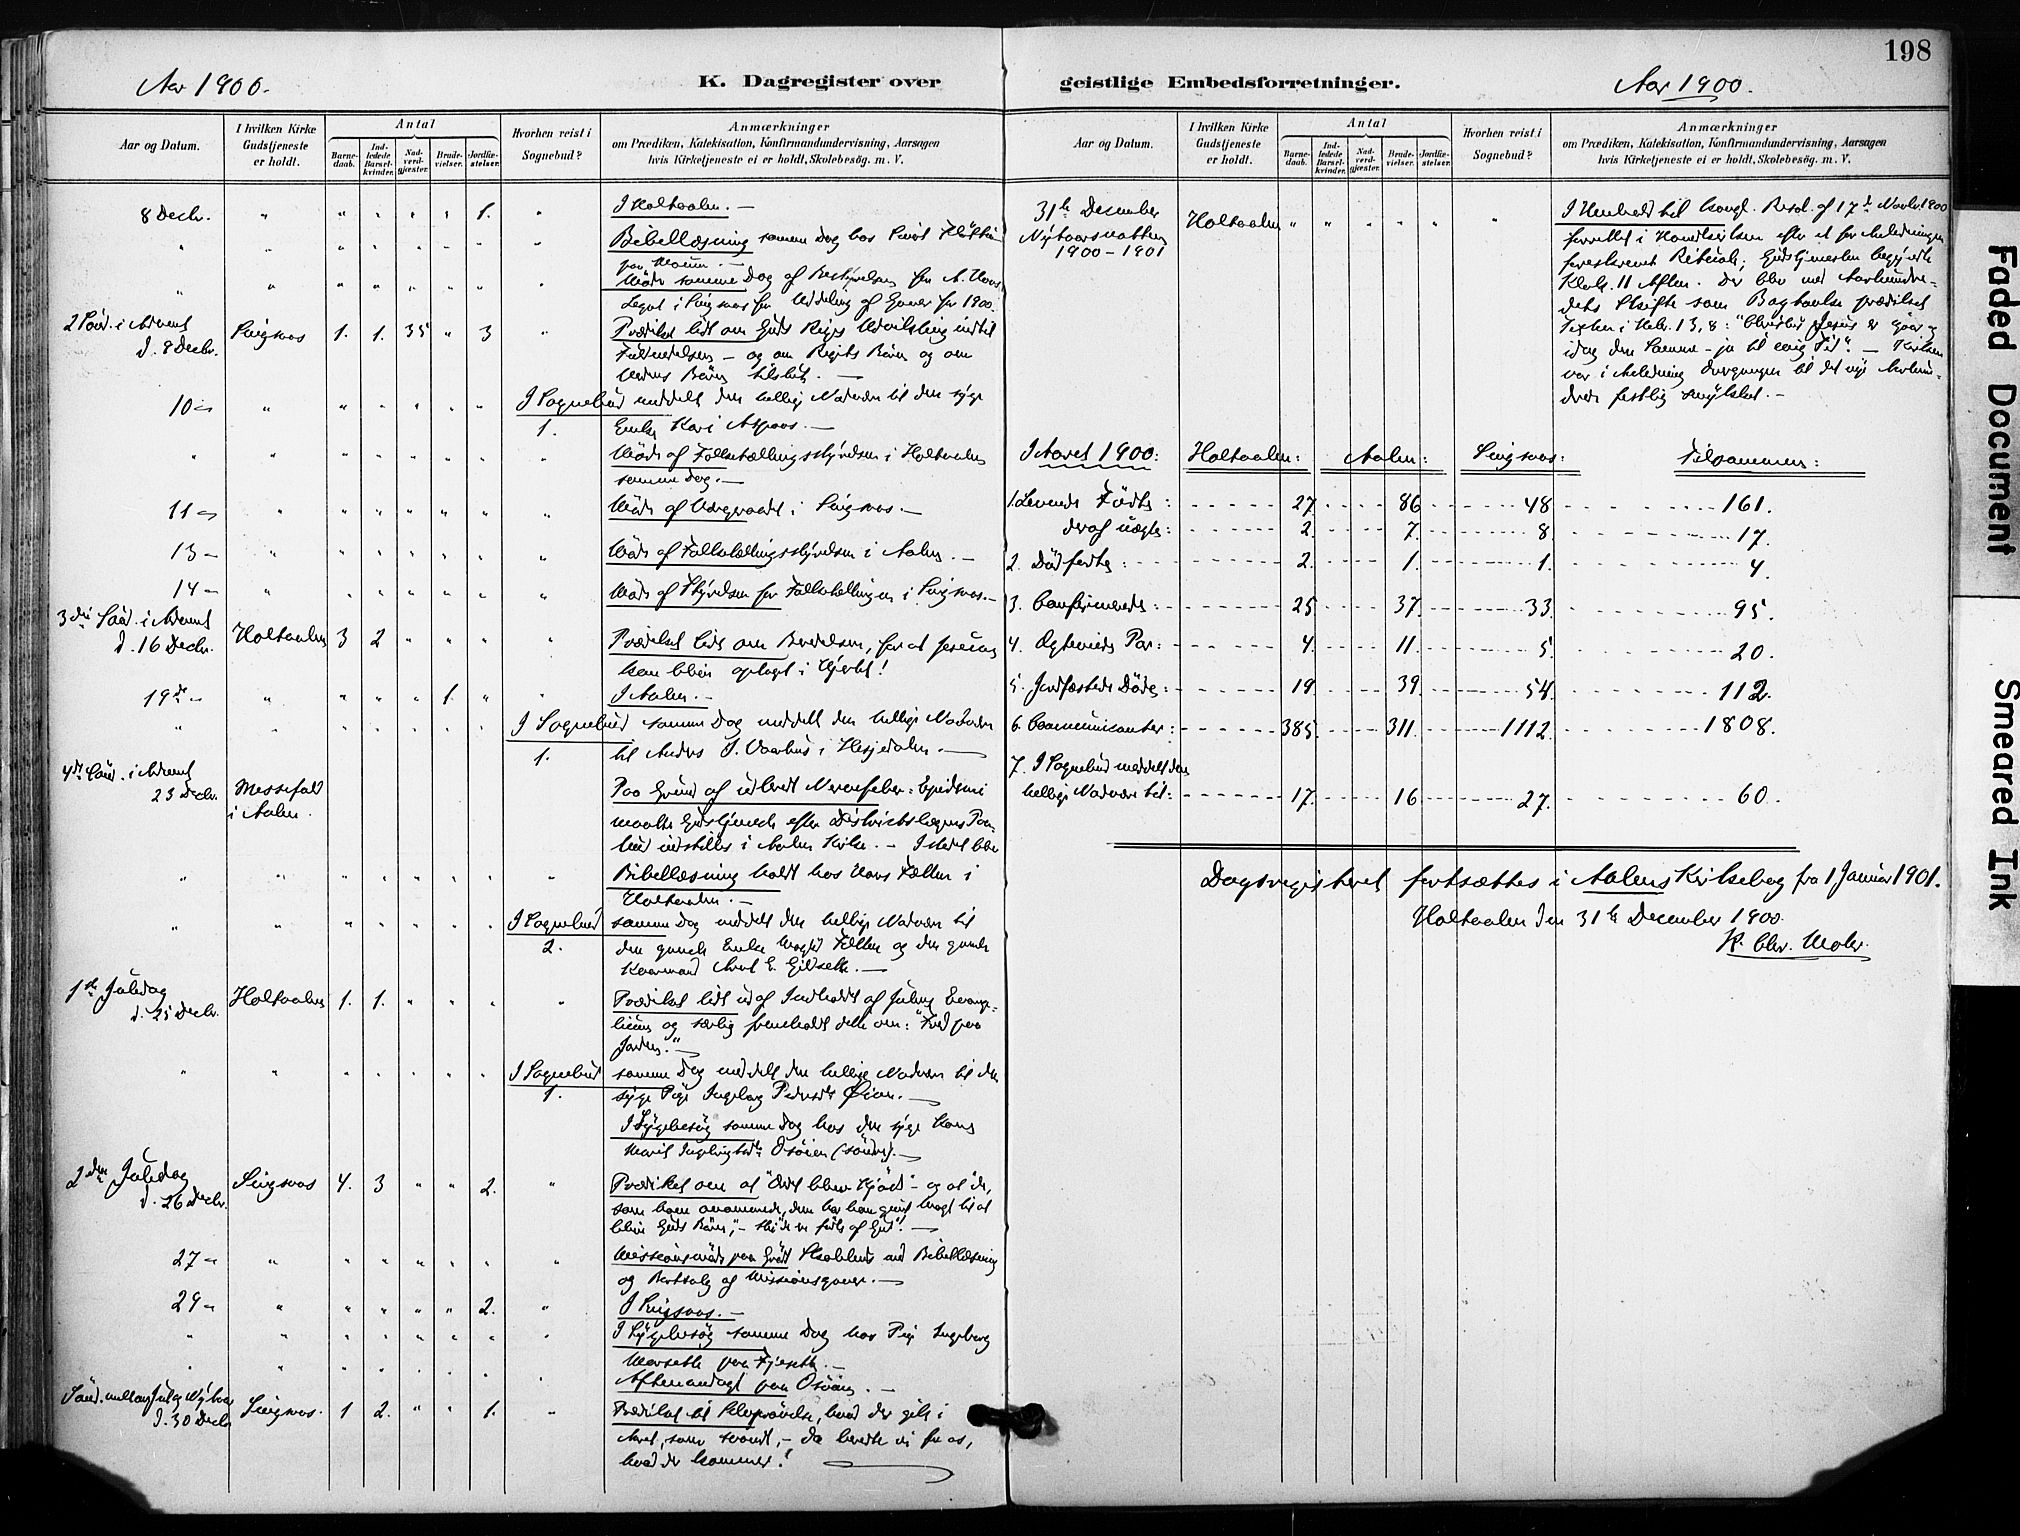 198
Aar 1900.
K. Dagregister over
geistlige Embedsforretninger.
Aar 1900.
Aar og Datum.
I hvilken Kirke Gudstjeneste er holdt.
Antal
Barnedaab.
Indledede Barselkvinder.
Nadverdgjæster.
Brudevielser.
Jordfæstelser.
Hvorhen reist i Sognebud?
Anmærkninger
om Prædiken, Katekisation, Konfirmandundervisning, Aarsagen
hvis Kirketjeneste ei er holdt, Skolebesøg. m. V.
8 Decbr. " " " " " 1. " I Holtaalen. —
" " " " " " " Bibellæsning samme Dag hos
paa
" " " " " " " Møde samme Dag af Bestyrelsen for A.
Legat i Singsaas for Uddeling af Gaver for 1900.
2 Sönd. i Advent
d. 9 Decbr. Singsaas 1. 1. 35 " 3 " Prædiket lidt om Guds Riges Udvikling indtil
Fuldendelsen — og om Rigets Børn og om
Verdens Børn tilslut. —
10 — " " " " " " I Sognebud meddelt den hellige Nadvere til den syge
1. Enke Kari Aspaas. —
" " " " " " " Møde af Folketællingsstyrelsen i Holtaalen
samme Dag. —
11 — " " " " " " " Møde af Værgeraadet i Singsaas. —
13 — " " " " " " " Møde af Folketællingsstyrelsen i Aalen. —
14 — " " " " " " " Møde af Styrelsen for Folketællingen i Singsaas. —
3die Sönd. i Advent
d. 16 Decbr. Holtaalen 3 2 " " " " Prædiket lidt om Beredelsen, for at Jesus
kan blive optaget i Hjertet!
19de — " " " " 1. " " I Aalen. —
" " " " " " I Sognebud samme Dag meddelt den hellige Nadvere
1. til Anders J. Vaarhus i Hesjedalen. —
4de Sönd. i Advent
23 Decbr. Messefald
i Aalen. Paa Grund af udbredt Nervefeber-Epidemi
maatte Gudstjeneste efter Distriktslægens
indstilles i Aalen Kirke. — I Stedet blev
" " " " " " " Bibellæsning holdt hos Hans Fælten i
Holtaalen. —
" " " " " " I Sognebud samme Dag meddelt den hellige Nadvere til
2. den gamle Enke og den gamle
Kaarmand —
1ste Juledag
d. 25 Decbr. Holtaalen 1. 1. " " " " Prædiket lidt ud af Indholdet af Julens Evange-
lium og særlig fremholdt dette om: "Fred paa
Jorden." —
" " " " " " I Sognebud samme Dag meddelt den hellige Nadvere til den
1. syge Pige Ingeborg Pedersdtr Øien. —
I Sygebesøg samme Dag hos den syge Kone
Marit Ingebrigtsdtr Osøien (søndre). —
2den Juledag
d. 26 Decbr. Singsaas 4. 3 " " 2. " Prædiket om at "Ordet blev Kjød" — og at de,
som ham annammede, dem har han givet Magt til at
blive Guds Børn, — de er født af Gud". —
27 — " " " " " " " Missionsmøde paa med Bibellæsning
og Bortsalg af Missionsgaver. —
29 — " " " " " 2. " I Singsaas. —
" " " " " " " I Sygebesøg samme Dag hos Pige Ingeborg
paa —
" " " " " " " Aftenandagt paa Osøien. —
Sönd. mellem Jul og Nytaar
d. 30 Decbr. Singsaas. 1 2. " " 1. " Prædiket til Selvprøvelse, hvad der gik i
Aaret, som svandt, — Da berede vi for os,
hvad der kommer!
Aar og Datum.
I hvilken Kirke Gudstjeneste er holdt.
Antal
Barnedaab.
Indledede Barselkvinder.
Nadverdgjæster.
Brudevielser.
Jordfæstelser.
Hvorhen reist i Sognebud?
Anmærkninger
om Prædiken, Katekisation, Konfirmandundervisning, Aarsagen
hvis Kirketjeneste ei er holdt, Skolebesøg. m. V.
31te December
Nytaarsnatten
1900 - 1901 Holtaalen " " " " " " I Henhold til kongl. Resol. af 17de Novbr. 1900
forrettet i Handlelsen efter et for Anledningen
foreskrevet Ritual; Gudstjenesten begyndte
Klok. 11 Aften. Der blev ved Aarhundre-
dets Skifte som Bagtavle prædiket
Texten i Hebr. 13, 8: "Christus Jesus er igaar og
idag den Samme - ja til evig Tid". — Kirken
var i Anledning Overgangen til det nye Aarhun-
drede festlig smykket. —
I Aaret 1900: Holtaalen: Aalen: Singsaas: Tilsammen:
1. Levende Fødte: 27 86 48 161.
deraf uægte: 2. 7. 8 17.
2. Dødfødte: 2. 1. 1. 4.
3. Confirmerede: 25 37 33 95.
4. Ægteviede Par: 4. 11. 5. 20.
5. Jordfæstede Døde: 19 39 54 112.
6. Communicanter: 385 311. 1112. 1808.
7. I Sognebud meddelt den
hellige Nadvere til: 17. 16 27. 60.
Dagsregisteret fortsættes i Aalens Kirkebog fra 1 Januar 1901.
Holtaalen den 31te December 1900.
K. Chr. Moler.
Faded Document
Smeared Ink